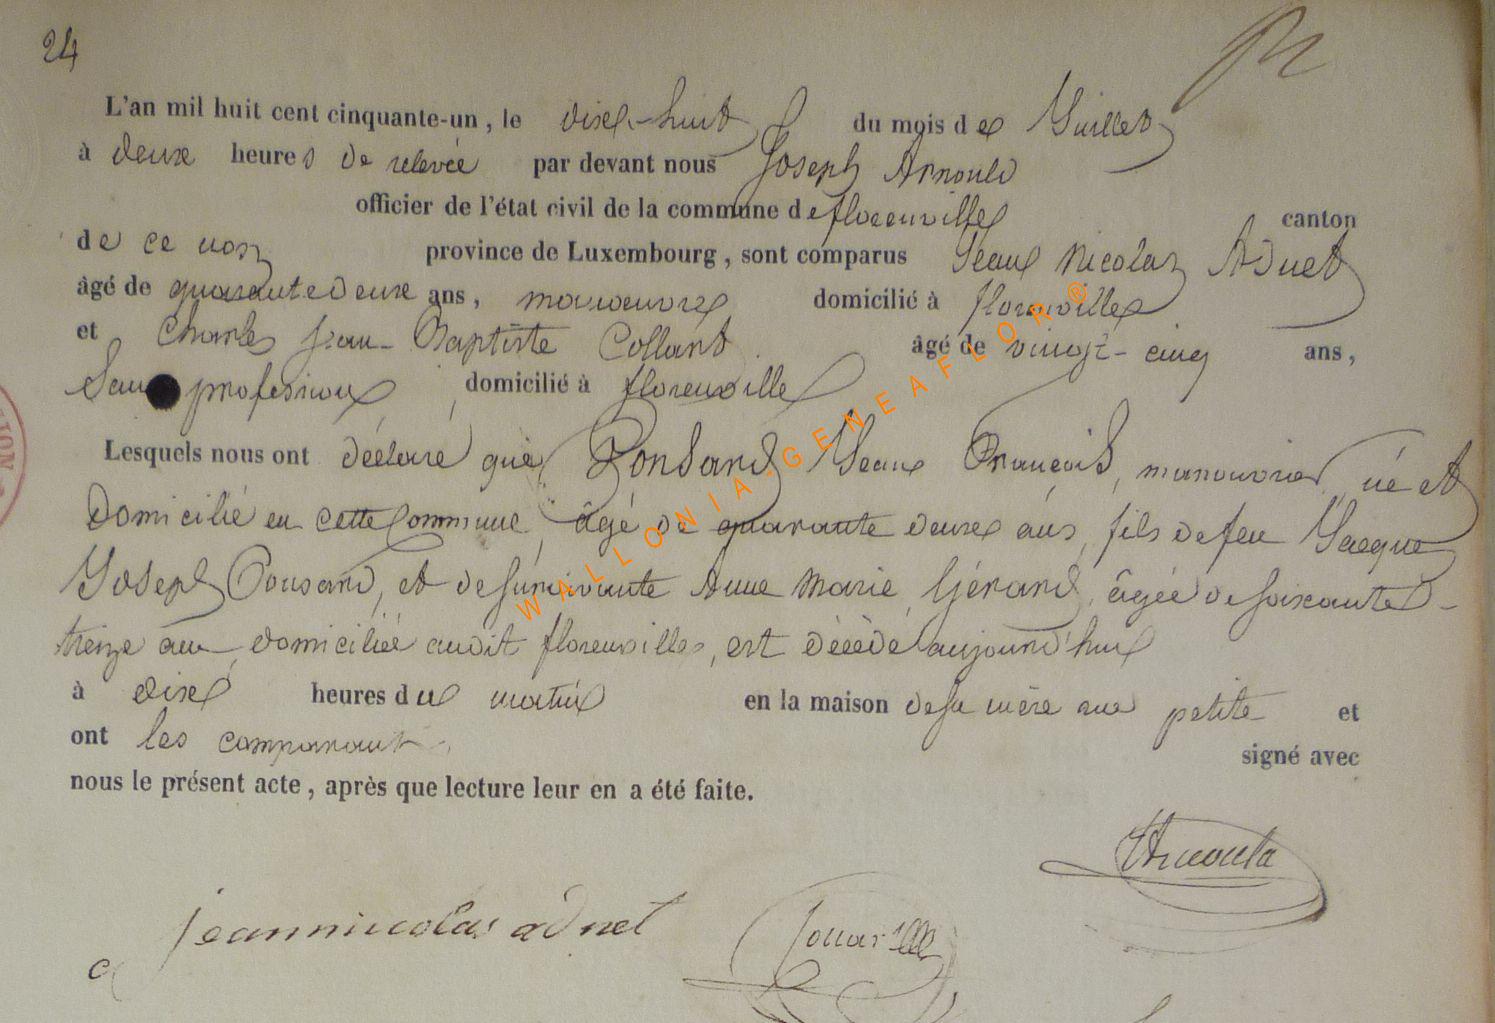 24
L'an mil huit cent cinquante-un, le dix-huit du mois de Juillet
à deux heures de relevée par devant nous Joseph Arnould
officier de l'état civil de la commune de florenville canton
de ce nom province de Luxembourg, sont comparus Jean Nicolas Adnet
âgé de quarante deux ans, manoeuvre domicilié à florenville
et Charles Jean-Baptiste Collard âgé de vingt-cinq ans,
Sans profession domicilié à florenville
Lesquels nous ont déclaré que Ponsard Jean François, manouvrier, né et
Domicilié en cette Commune, âgé de quarante deux ans, fils de feu Jacque
Joseph Ponsard, et de survivante Anne Marie Gérard, âgée de soixante-
treize ans, domiciliée audit florenville, est décédé aujourd'hui
à dix heures du matin en la maison de sa mère rue petite et
ont les comparant signé avec
nous le présent acte, après que lecture leur en a été faite.
Arnould
jeannicolas adnet
WALLONIA.GENEAFLOR®